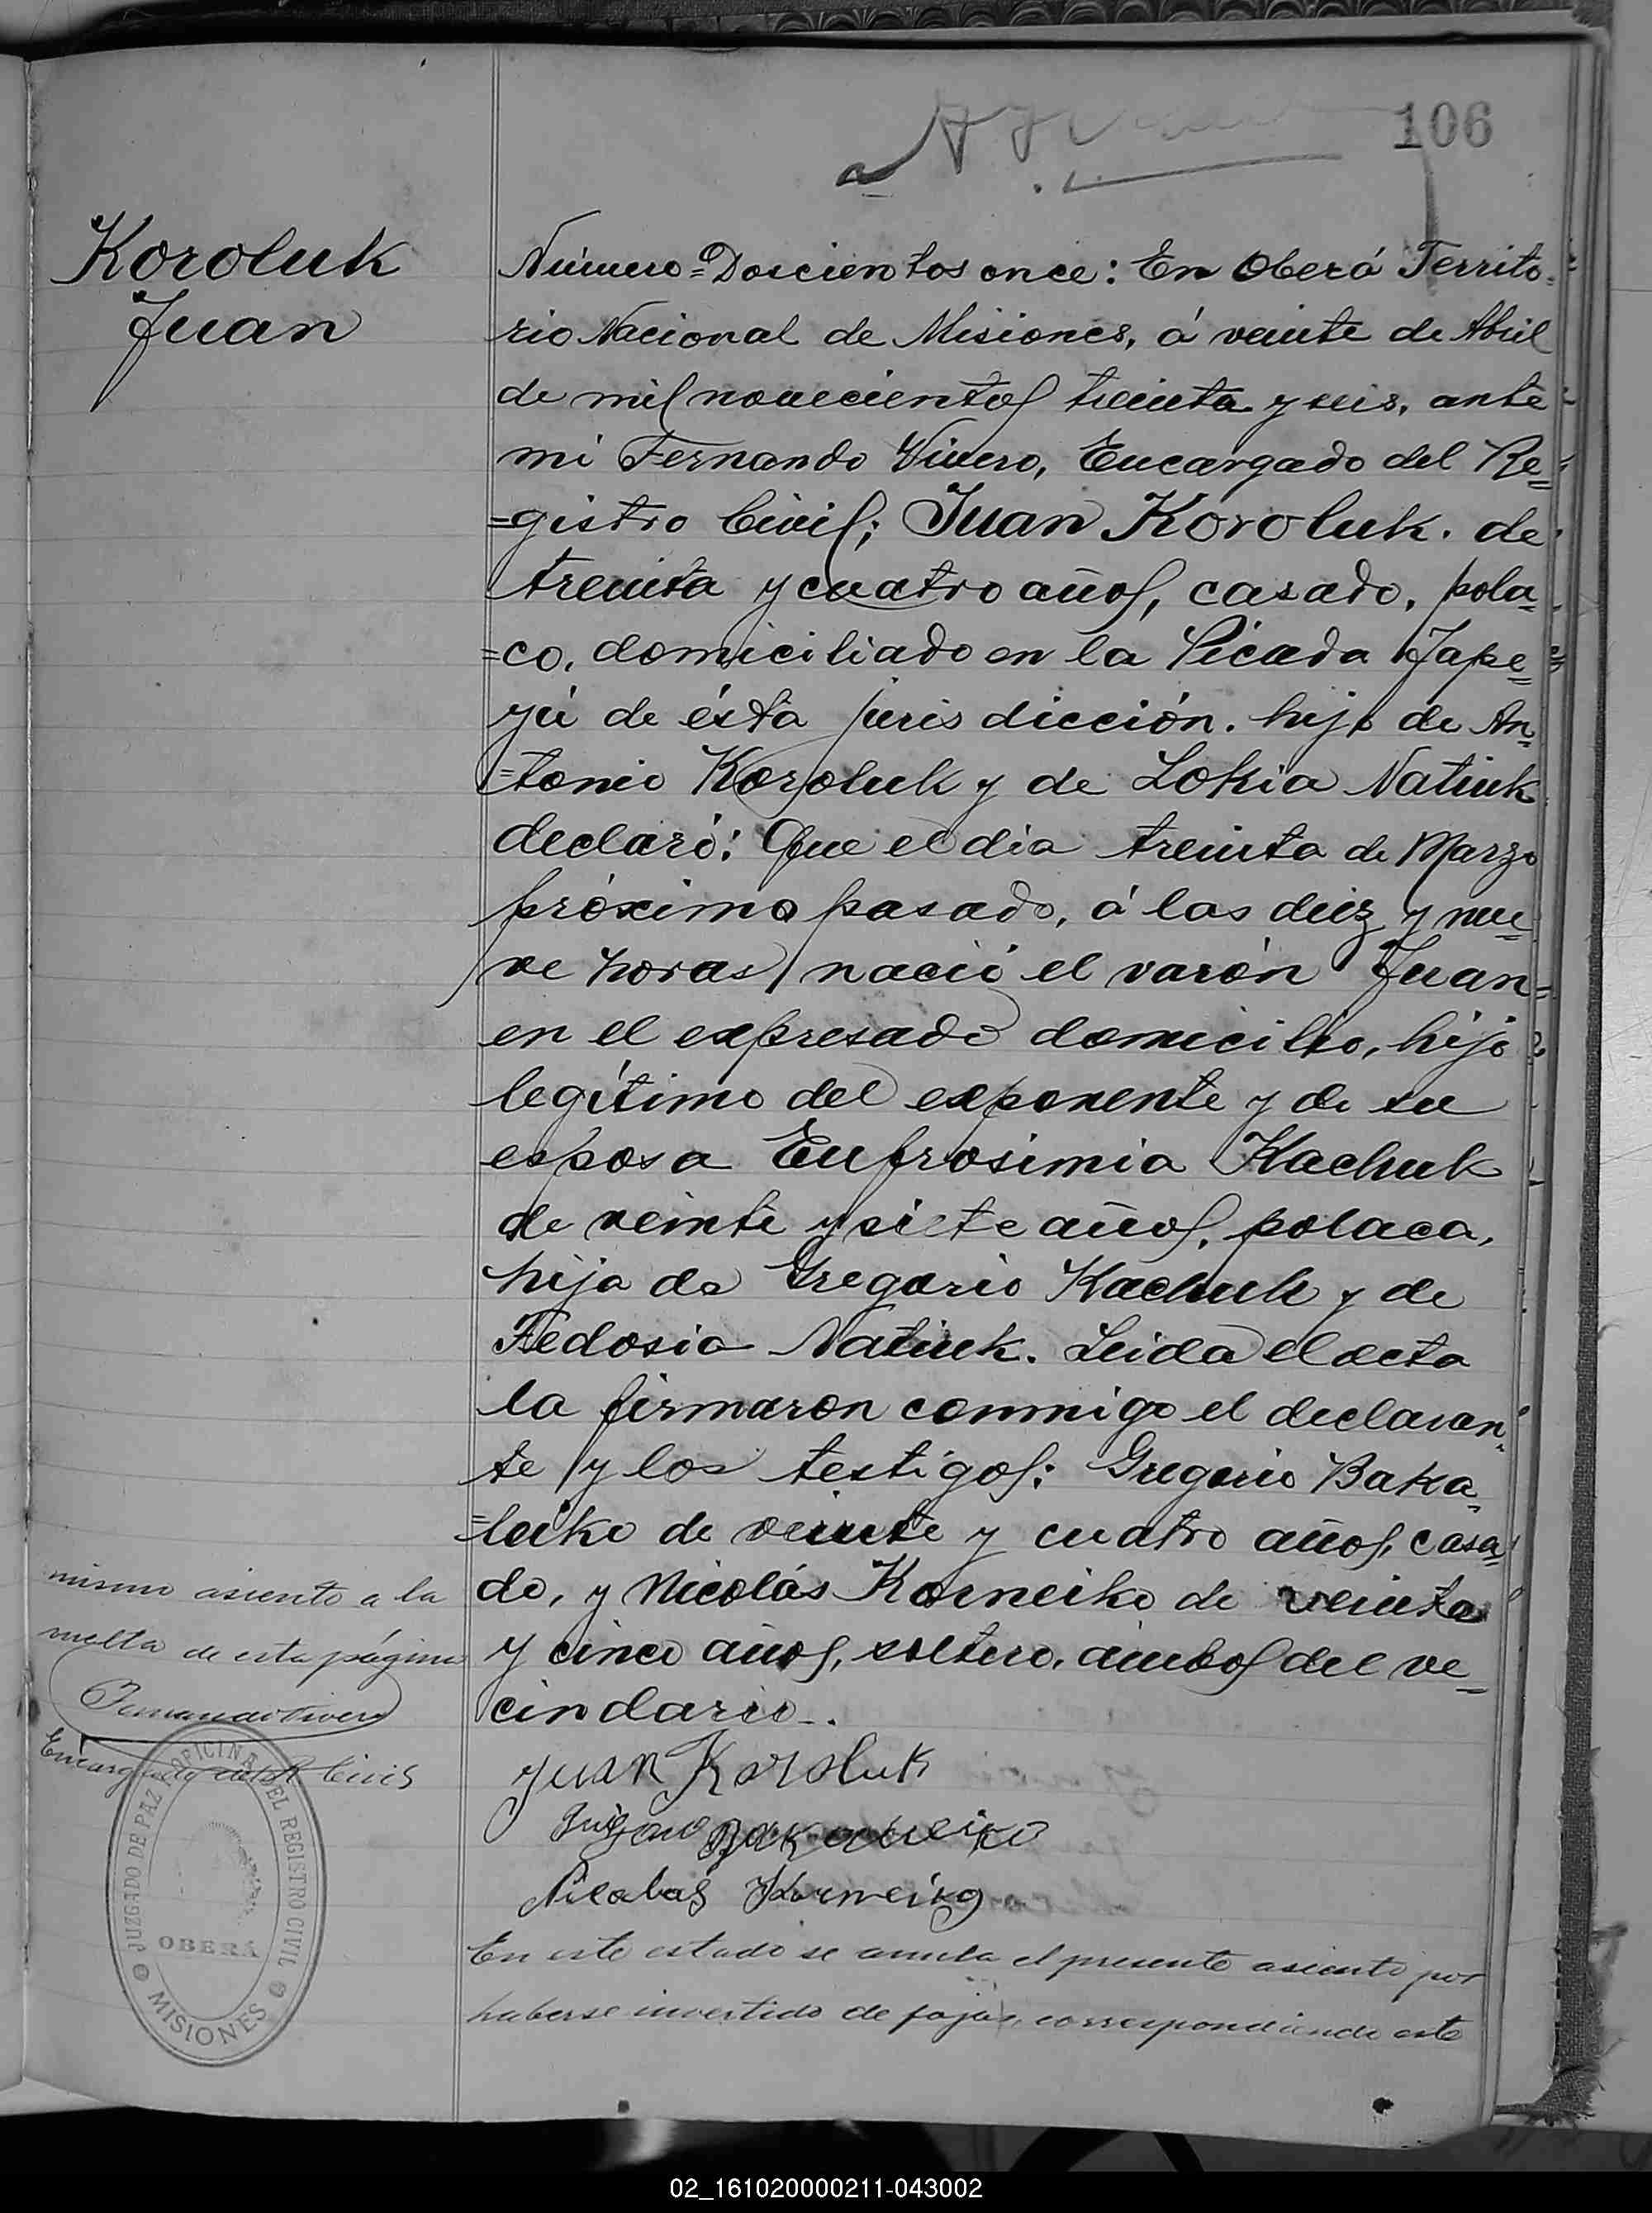 106
Koroluk
Juan
Número=Doscientos once: En Oberá Territo=
rio Nacional de Misiones, á veinte de Abril
de mil novecientos treinta y seis, ante
mi Fernando Vivero, Encargado del Re=
=gistro Civil; Juan Koroluk. de
treinta y cuatro años, casado, pola=
=co, domiciliado en la Picada Yape=
yú de ésta jurisdicción. hijo de An=
=tonio Koroluk y de Lokia Natiuk
declaró: Que el dia treinta de Marzo
próximo pasado, á las diez y nue=
ve horas, nació el varón Juan=
en el expresado domicilio, hijo
legítimo del exponente y de su
esposa Eufrosimia Kachuk
de veinte y siete años, polaca,
hija de Gregorio Kachuk y de
Fedosia Natiuk. Leida el acta
la firmaron conmigo el declaran=
te y los testigos: Gregorio Baka=
=leiko de veinte y cuatro años, casa=
do, y Nicolás Korneiko de veinte
y cinco años, soltero, ambos del ve=
cindario.-.
Juan Koroluk
Nicolas Korneiko
En este estado se anula el presente asiento por
haberse invertido de fojas, correspondiendo este
mismo asiento a la
vuelta de esta página
Fernando Vivero
Encargado del R. Civil
OFICINA DEL REGISTRO CIVIL
JUZGADO DE PAZ
OBERÁ
MISIONES
02_161020000211-043002